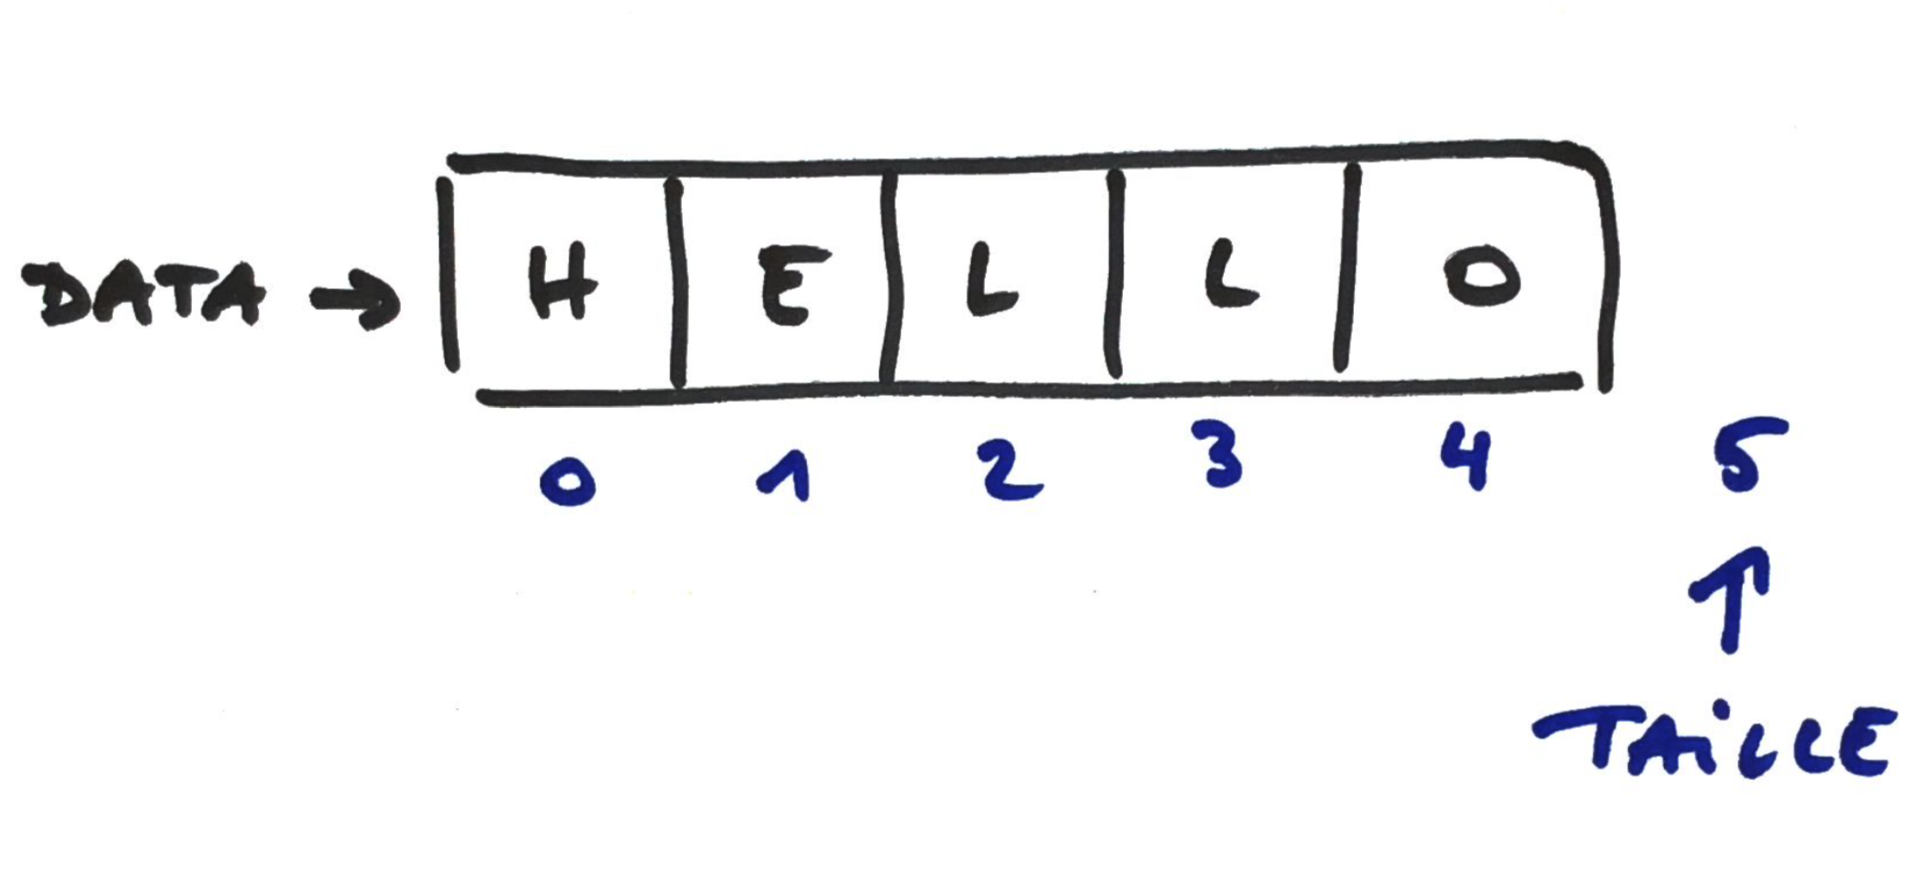 DATA → H E L L O
0 1 2 3 4 5
↑
TAiLLE